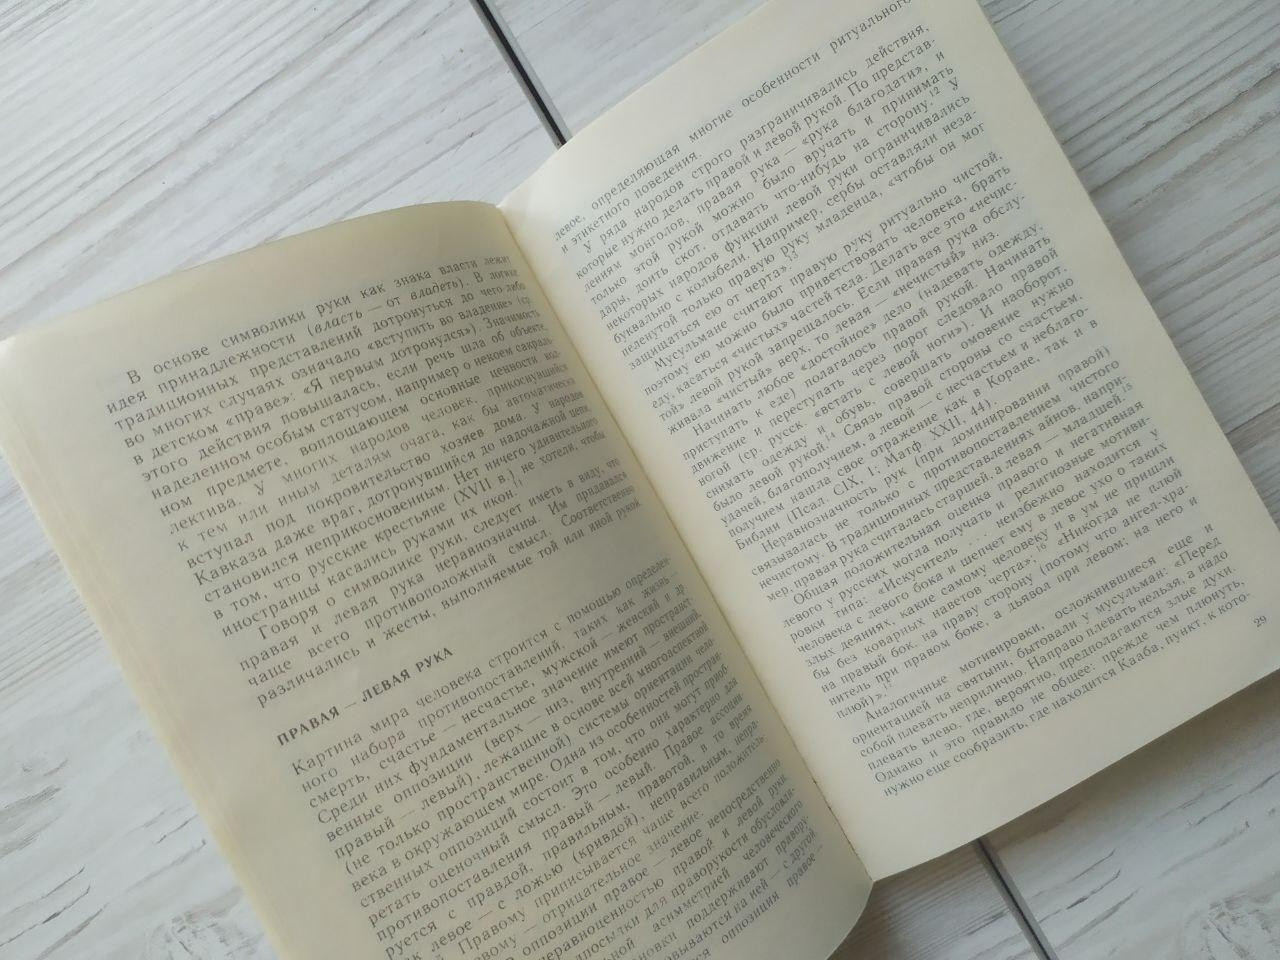 В основе символики руки как знака власти лежит
идея принадлежности (власть — от владеть). В логике
традиционных представлений дотронуться до чего-либо
во многих случаях означало «вступить во владение» (ср.
в детском «праве»: «Я первым дотронулся»). Значимость
этого действия повышалась, если речь шла об объекте,
наделенном особым статусом, например о некоем сакраль-
ном предмете, воплощающем основные ценности кол-
лектива. У многих народов человек, прикоснувшийся
к тем или иным деталям очага, как бы автоматически
вступал под покровительство хозяев дома. У народов
Кавказа даже враг, дотронувшийся до надочажной цепи,
становился неприкосновенным. Нет ничего удивительного
в том, что русские крестьяне (XVII в.) не хотели, чтобы
иностранцы касались руками их икон.
Говоря о символике руки, следует иметь в виду, что
правая и левая рука неравнозначны. Им придавался
чаще всего противоположный смысл. Соответственно
различались и жесты, выполняемые той или иной рукой.
ПРАВАЯ — ЛЕВАЯ РУКА
Картина мира человека строится с помощью определен-
ного набора противопоставлений, таких как жизнь —
смерть, счастье — несчастье, мужской — женский и др.
Среди них фундаментальное значение имеют пространст-
венные оппозиции (верх — низ, внутренний — внешний,
правый — левый), лежащие в основе всей многоаспектной
(не только пространственной) системы ориентации чело-
века в окружающем мире. Одна из особенностей простран-
ственных оппозиций состоит в том, что они могут приоб-
ретать оценочный смысл. Это особенно характерно для
противопоставления правый — левый. Правое ассоции-
руется с правдой, правильным, правотой, в то время
как левое — с ложью (кривдой), неправильным, непра-
Правому приписывается чаще всего положитель-
левому — отрицательное значение.
оппозиции правое — левое непосредственно
неравноценностью правой и левой руки.
предпосылки для праворукости обусловле-
асимметрией человеческого
поддерживают правору-
на ней — с другой
оппозиция правое —
левое, определяющая многие особенности ритуального
и этикетного поведения.
У ряда народов строго разграничивались действия,
которые нужно делать правой и левой рукой. По представ-
лениям монголов, правая рука — «рука благодати», и
только этой рукой можно было вручать и принимать
дары, доить скот, отдавать что-нибудь на сторону.12 У
некоторых народов функции левой руки ограничивались
буквально с колыбели. Например, сербы оставляли неза-
пеленутой только правую руку младенца, «чтобы он мог
защищаться ею от черта».13
Мусульмане считают правую руку ритуально чистой,
поэтому ею можно было приветствовать человека, брать
еду, касаться «чистых» частей тела. Делать все это «нечис-
той» левой рукой запрещалось. Если правая рука обслу-
живала «чистый» верх, то левая — «нечистый» низ.
Начинать любое «достойное» дело (надевать одежду,
приступать к еде) полагалось правой рукой. Начинать
движение и переступать через порог следовало правой
ногой (ср. русск. «встать с левой ноги»). И наоборот,
снимать одежду и обувь, совершать омовение нужно
было левой рукой.14 Связь правой стороны со счастьем,
удачей, благополучием, а левой — с несчастьем и неблаго-
получием нашла свое отражение как в Коране, так и в
Библии (Псал. CIX, 1; Матф. XXII, 44).
Неравнозначность рук (при доминировании правой)
связывалась не только с противопоставлением чистого
нечистому. В традиционных представлениях айнов, напри-
мер, правая рука считалась старшей, а левая — младшей.15
Общая положительная оценка правого и негативная
левого у русских могла получать и религиозные мотиви-
ровки типа: «Искуситель . . . неизбежно находится у
человека с левого бока и шепчет ему в левое ухо о таких
злых деяниях, какие самому человеку и в ум не пришли
бы без коварных наветов черта»;16 «Никогда не плюй
на правый бок, на праву сторону (потому что ангел-хра-
нитель при правом боке, а дьявол при левом: на него и
плюй)».
Аналогичные мотивировки, осложнившиеся еще и
ориентацией на святыни, бытовали у мусульман: «Перед
собой плевать неприлично. Направо плевать нельзя, а надо
плевать влево, где, вероятно, предполагаются злые духи.
Однако и это правило не общее: прежде чем плюнуть,
нужно еще сообразить, где находится Кааба, пункт, к кото-
29